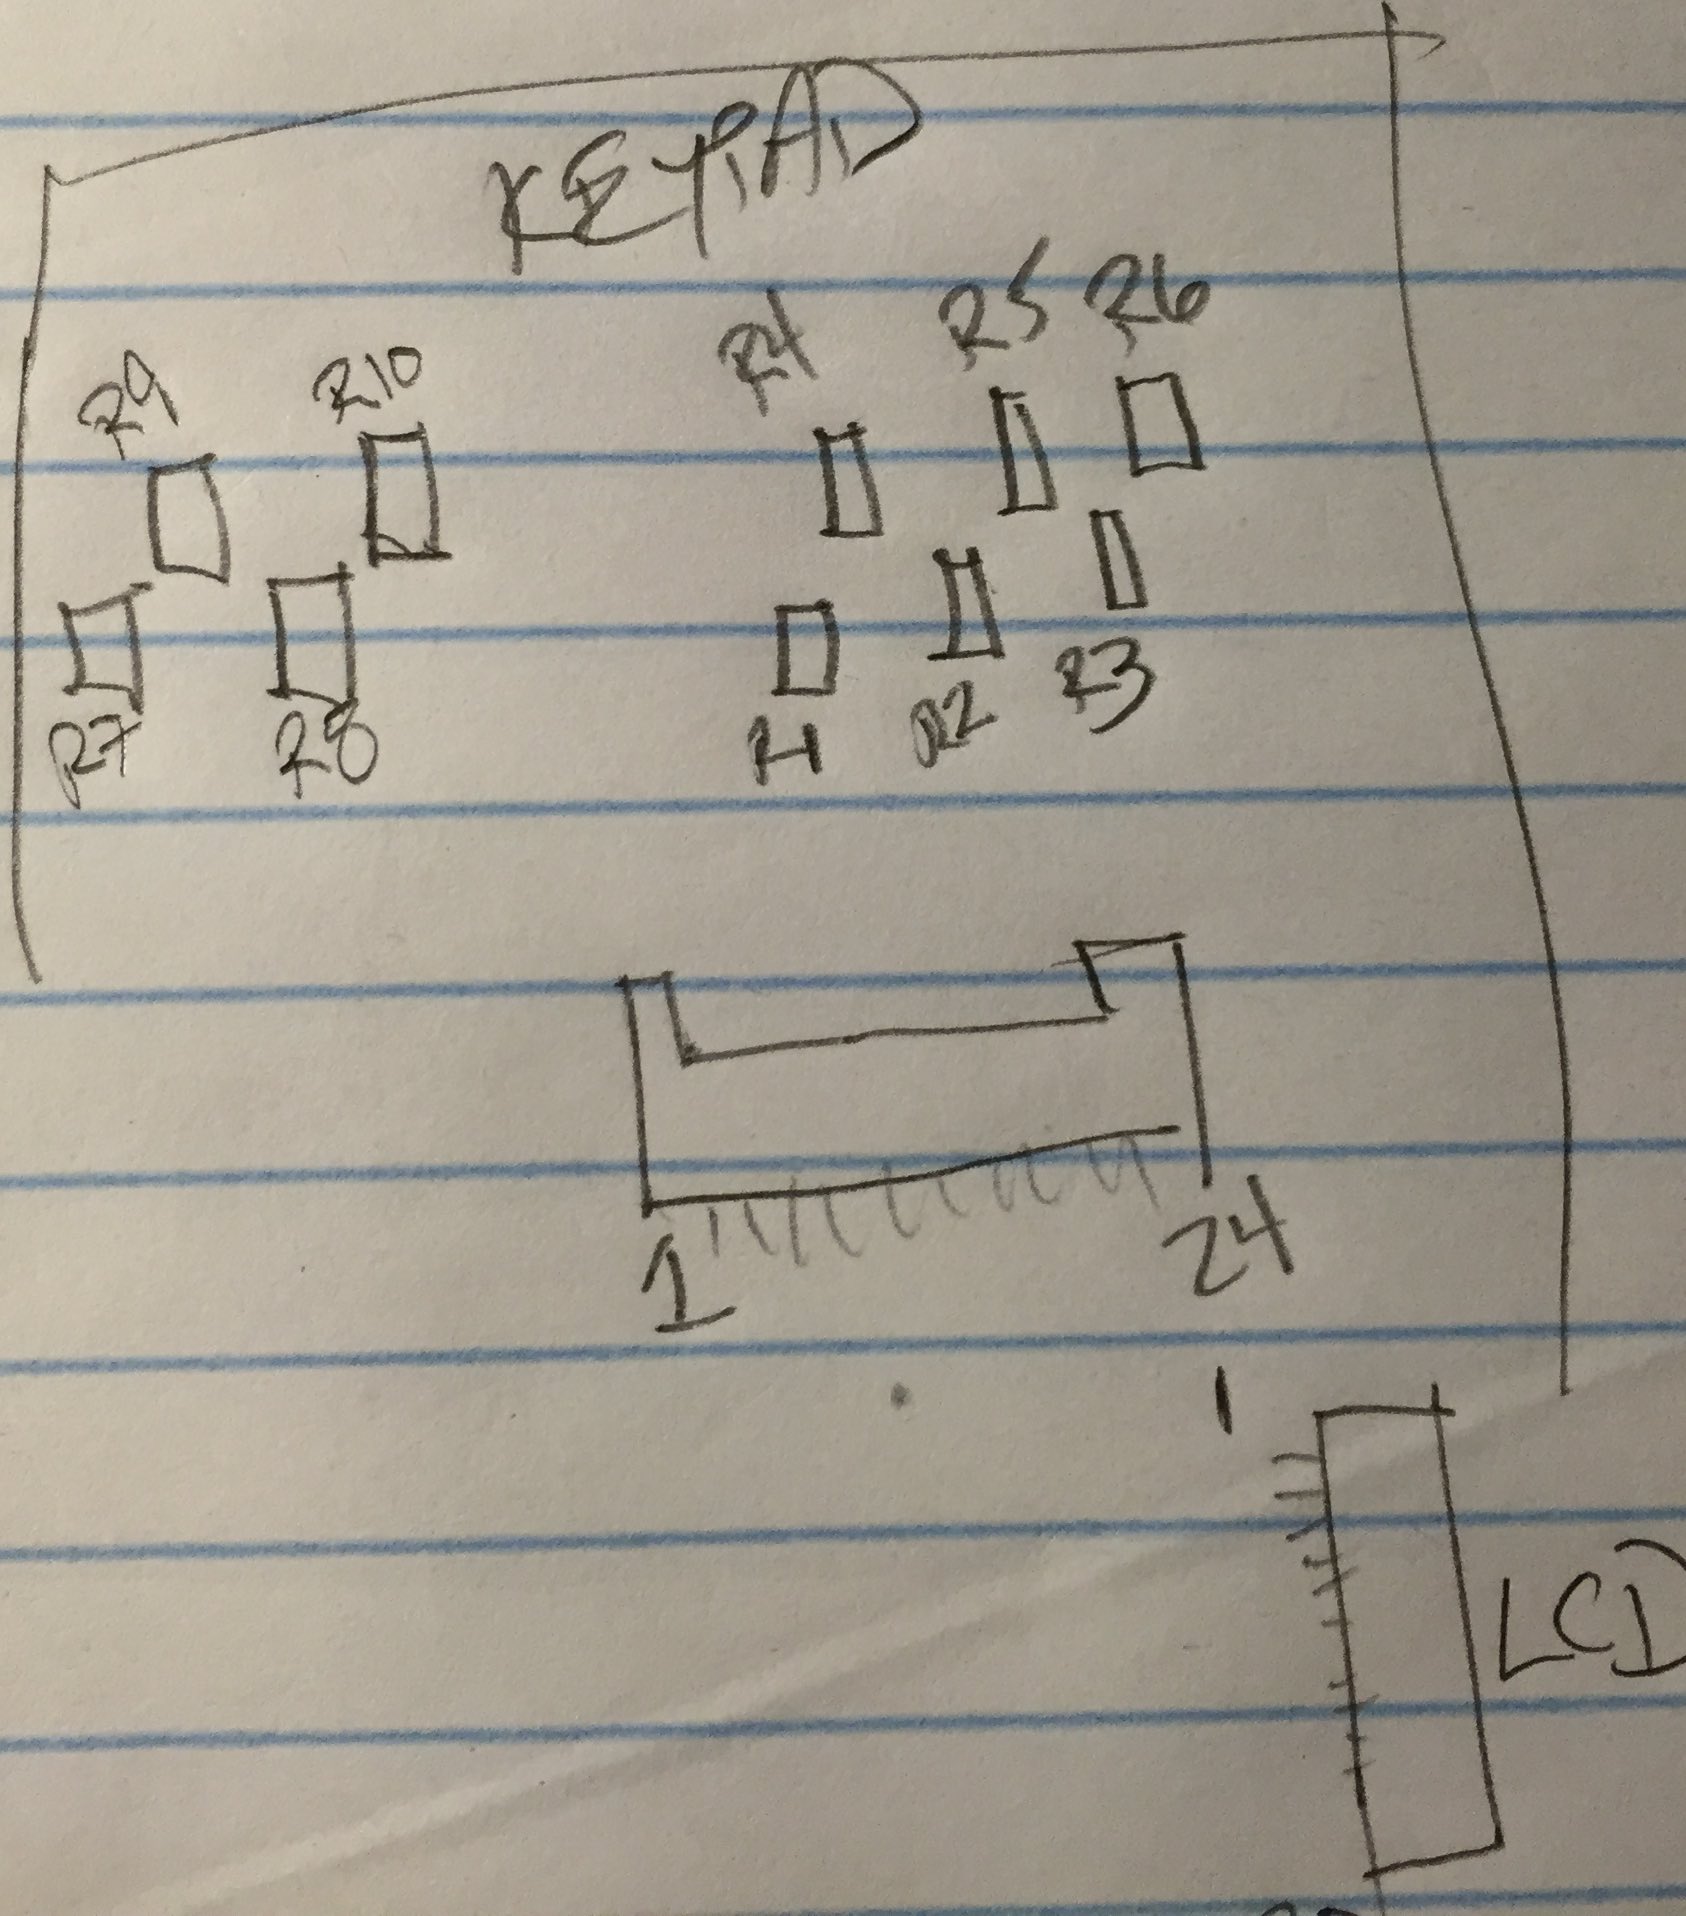 KEYPAD
R9 R10 R4 R5 R6
R7 R8 R1 R2 R3
1 24
1
LCD